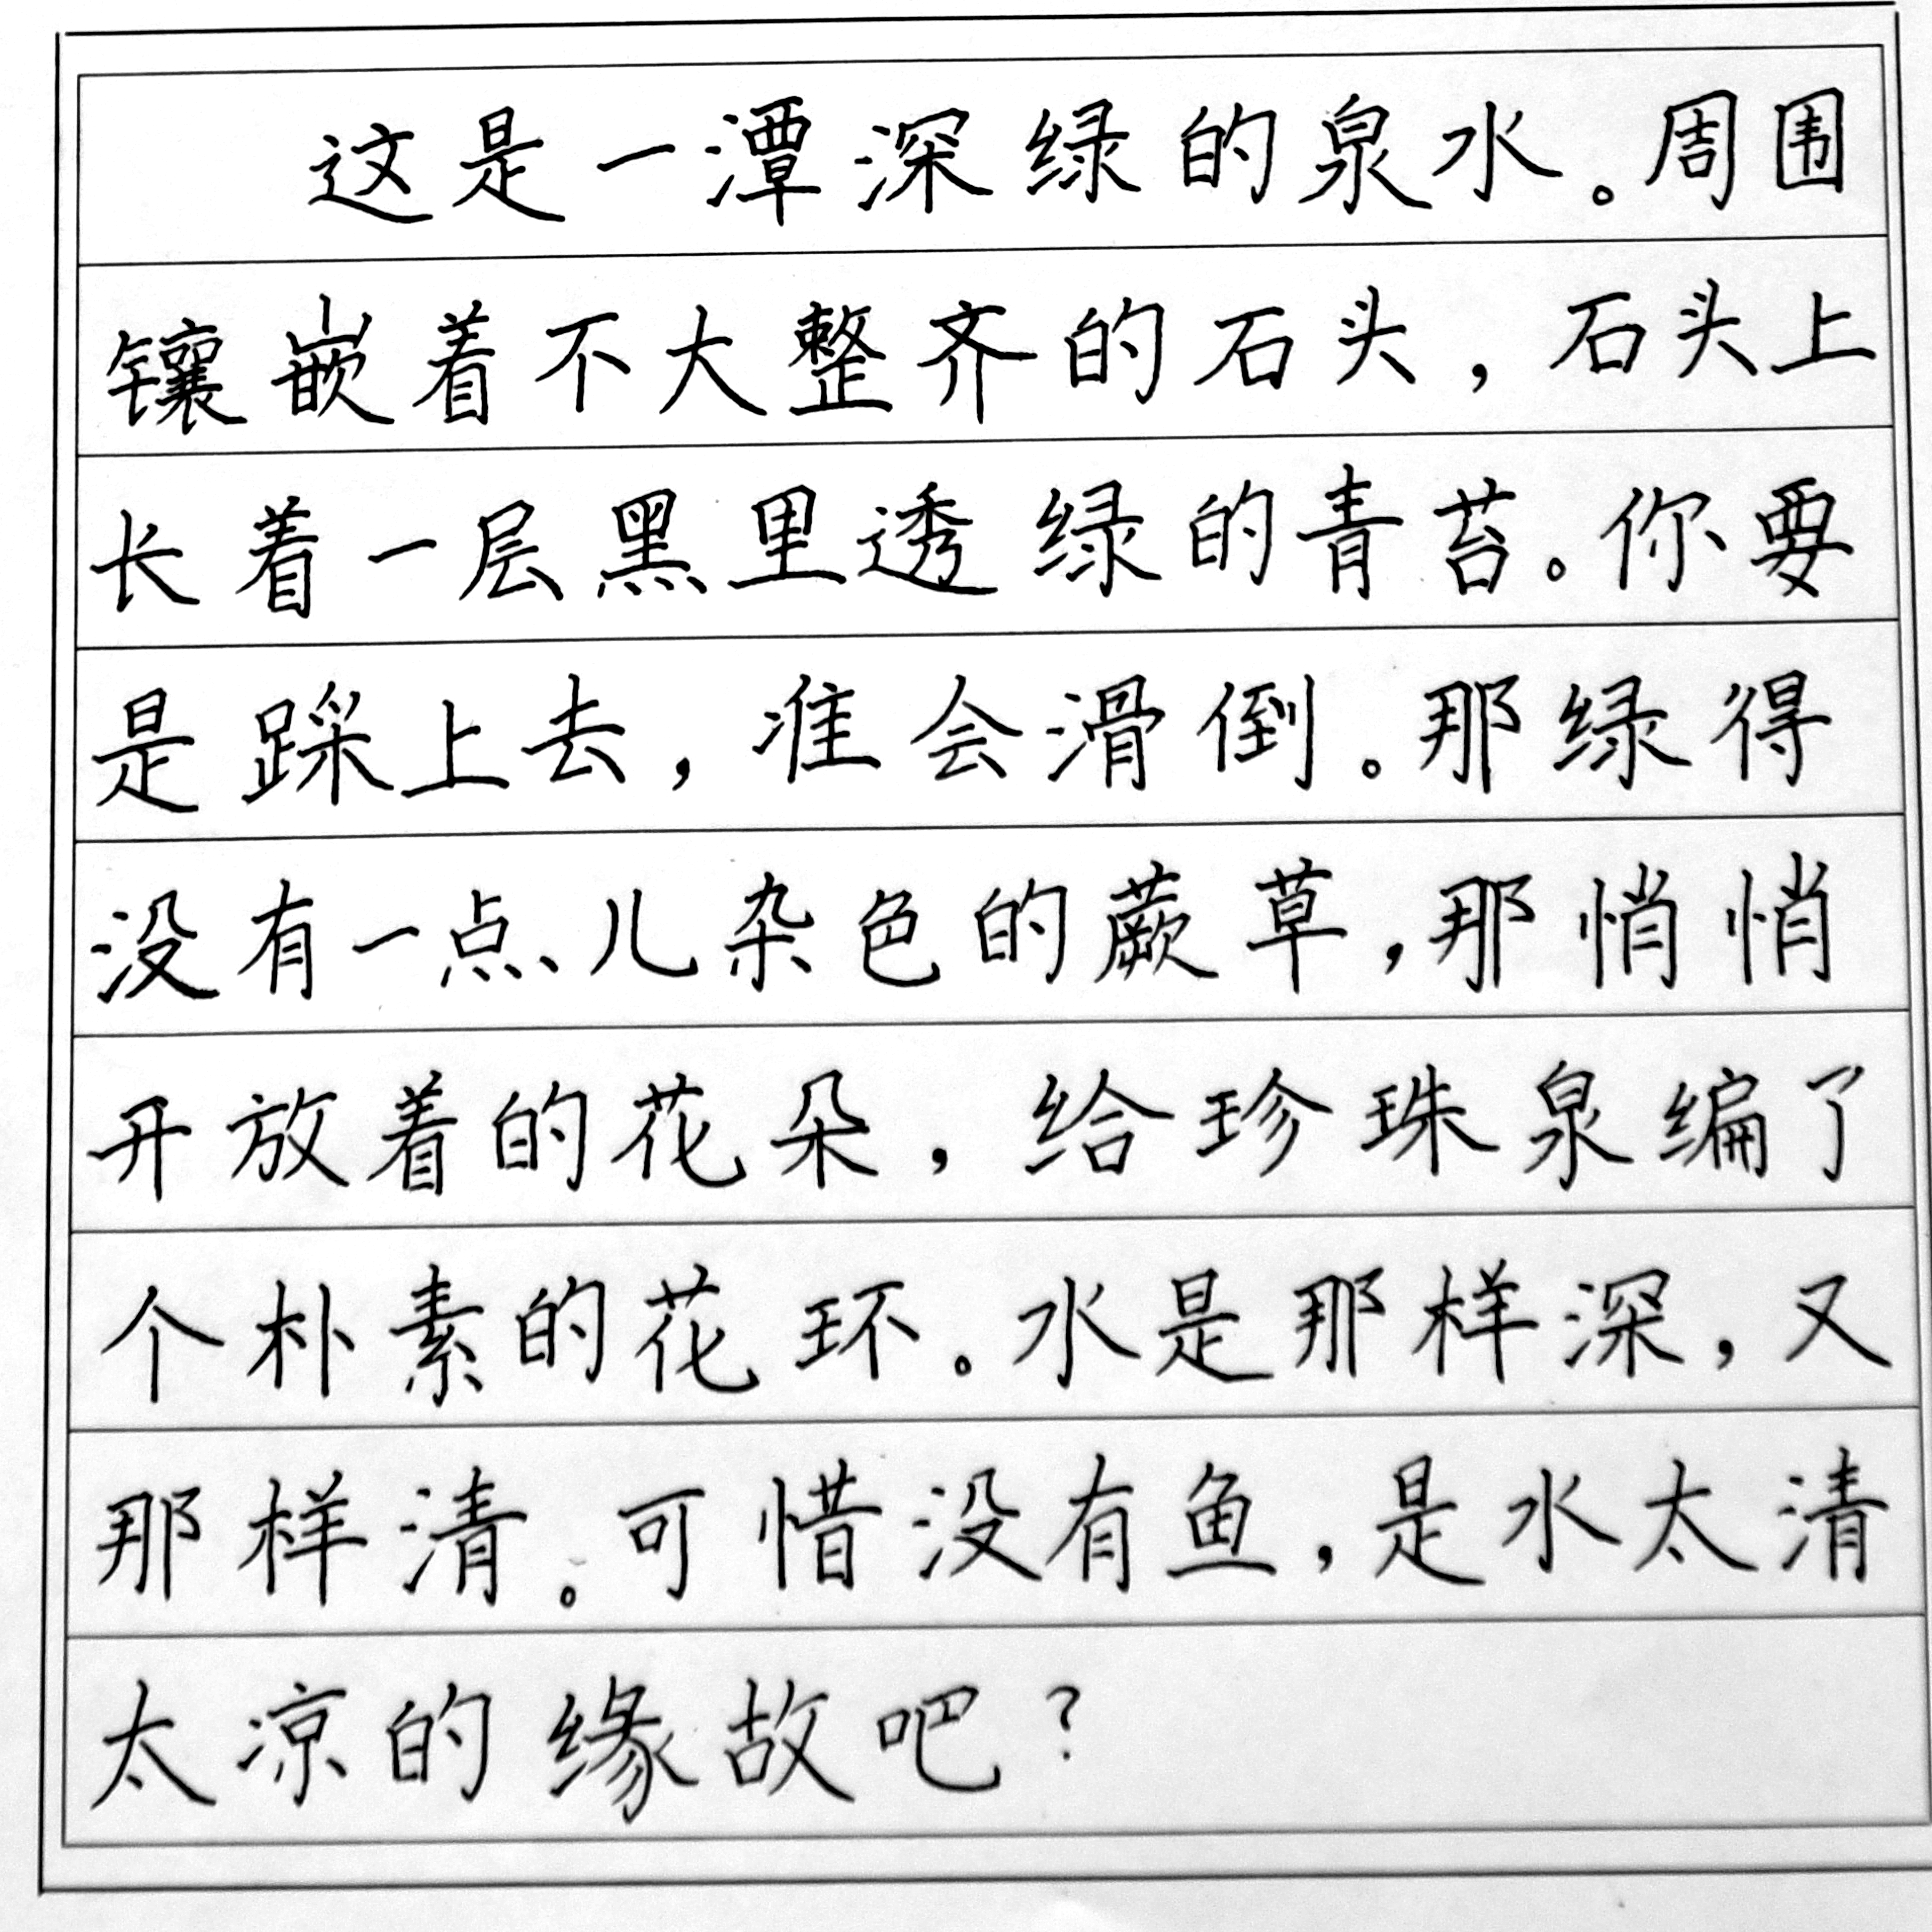 这是一潭深绿的泉水。周围
镶嵌着不大整齐的石头，石头上
长着一层黑里透绿的青苔。你要
是踩上去，准会滑倒。那绿得
没有一点、儿杂色的蕨草，那悄悄
开放着的花朵，给珍珠泉编了
个朴素的花环。水是那样深，又
那样清。可惜没有鱼，是水太清
太凉的缘故吧？